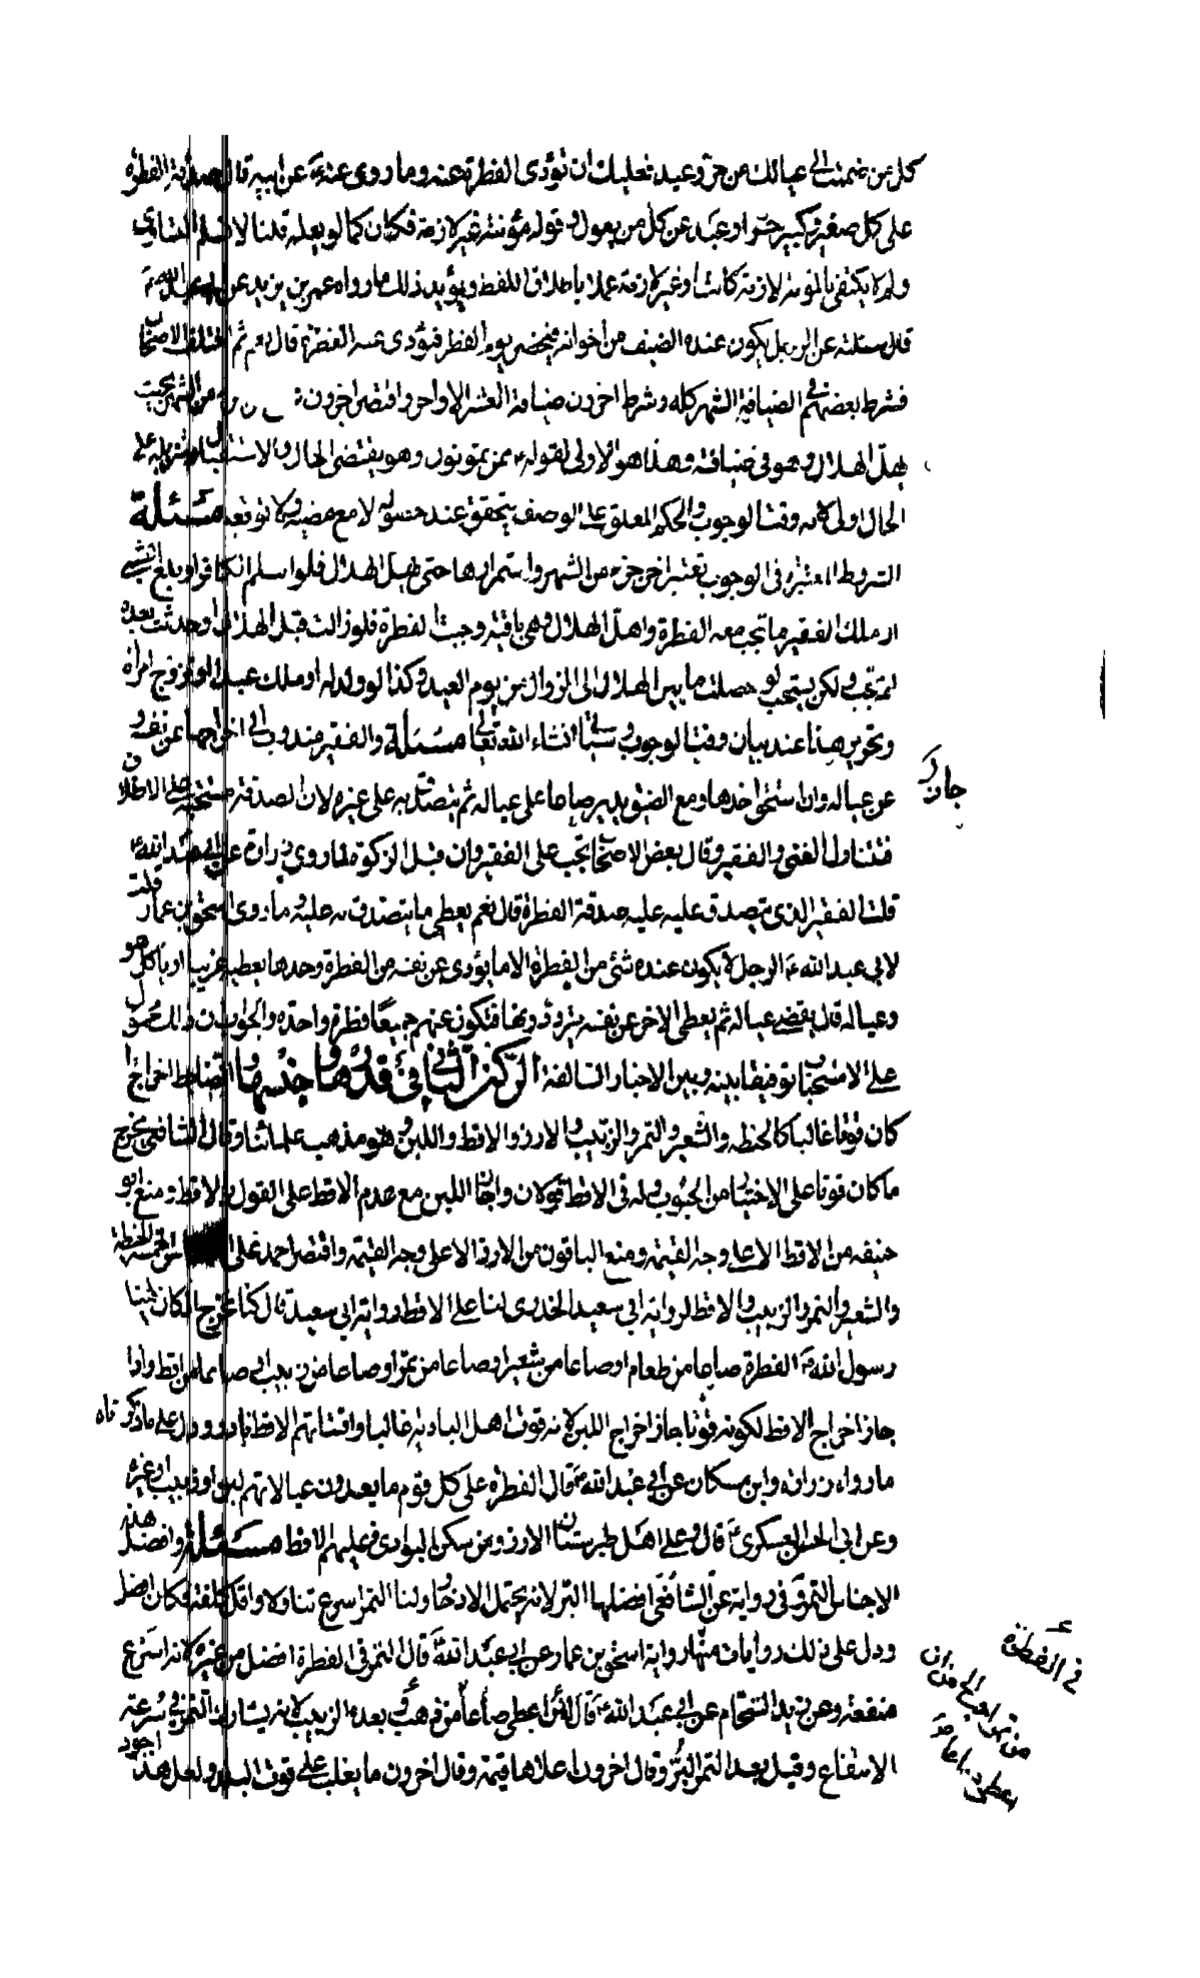 كل من ضممت الى عيالك من حر وعبد فعليك ان تؤدى الفطرة عنه وما روى عنه ع عن ابيه قال صدقة الفطرة
على كل صغير وكبير حر او عبد عن كل من يعول وقوله مؤنته غير لازمة فكان كما لو يعله قلنا لا نسلم التساوى
ولم لا يكتفى بالمؤنة لازمة كانت او غير لازمة عملا باطلاق اللفظ ويؤيد ذلك ما رواه عمر بن يزيد عن ابى عبد الله ع
قال سئلته عن الرجل يكون عنده الضيف من اخوانه فيحضر يوم الفطر فيؤدى عنه الفطرة قال نعم ثم اختلف الاصحاب
فشرط بعضهم فى الضيافة الشهر كله وشرط اخرون ضيافة العشر الاواخر واقتصر اخرون من الشهر بحيث
يهل الهلال وهو فى ضيافته وهذا هو الاولى لقوله ع ممن يمونون وهو يقتضى الحال والاستقبال وتنزيله على
الحال اولى لانه وقت الوجوب والحكم المعلق على الوصف يتحقق عند حصوله لا مع مضيه ولا توقعه مسئلة
الشروط المعتبرة فى الوجوب تعتبر اخر جزء من الشهر واستمرارها حتى يهل الهلال فلو اسلم الكافر او بلغ الصبى
او ملك الفقير ما تجب معه الفطرة واهل الهلال وهى باقية وجبت الفطرة فلو زالت قبل الهلال او حدثت بعده
لم تجب ولكن يستحب لو حصلت ما بين الهلال الى الزوال من يوم العيد وكذا لو ولد له او ملك عبدا او تزوج امراة
وتحرير هذا عند بيان وقت الوجوب وسياتى انشاء الله تعالى مسئلة والفقير مندوب الى اخراجها عن نفسه و
عن عياله وان استحق اخذها ومع الضيق يدير صاعا على عياله ثم يتصدق به على غيره لان الصدقة مستحبة على الاطلاق
فتناول الغنى والفقير وقال بعض الاصحاب تجب على الفقير وان قبل الزكوة لما روى زرارة عن ابى عبد الله ع
قلت الفقير الذى يتصدق عليه عليه صدقة الفطرة قال نعم يعطى ما يتصدق به عليه وما روى اسحق بن عمار قلت
لابى عبد الله ع الرجل لا يكون عنده شئ من الفطرة الا ما يؤدى عن نفسه من الفطرة وحدها يعطيه غريبا او ياكل هو
وعياله قال يعطى بعض عياله ثم يعطى الاخر عن نفسه يترددونها فتكون عنهم جميعا فطرة واحدة والجواب ان ذلك محمول
على الاستحباب توفيقا بينه وبين الاخبار السالفة الركن الثانى فى قدرها وجنسها والضابط اخراج ما
كان قوتا غالبا كالحنطة والشعير والتمر والزبيب والارز والاقط واللبن وهو مذهب علمائنا وقال الشافعى يخرج
ما كان قوتا على الاختيار من الحبوب وله فى الاقط قولان واجاز اللبن مع عدم الاقط على القول بالاقط ومنع ابو
حنيفه من الاقط الا على وجه القيمة ومنع الباقون من الارز الا على وجه القيمة واقتصر احمد على الخمسة الحنطة
والشعير والتمر والزبيب والاقط لرواية ابى سعيد الخدرى لنا على الاقط رواية ابى سعيد قال كنا نخرج اذ كان فينا
رسول الله ص الفطرة صاعا من طعام او صاعا من شعير او صاعا من تمر او صاعا من زبيب او صاعا من اقط واذا
جاز اخراج الاقط لكونه قوتا جاز اخراج اللبن لانه قوت اهل البادية غالبا واقتياتهم الاقط نادر ودل على ما ذكرناه
ما رواه زرارة وابن مسكان عن ابى عبد الله ع قال الفطرة على كل قوم ما يغذون عيالاتهم لبن او زبيب او غيره
وعن ابى الحسن العسكرى ع قال وعلى اهل طبرستان الارز ومن سكن البوادى فعليهم الاقط مسئلة وافضل هذه
الاجناس التمر وفى رواية عن الشافعى افضلها البر لانه يحتمل الادخار ولنا التمر اسرع تناولا واقل كلفة فكان افضل
ودل على ذلك روايات منها رواية اسحق بن عمار عن ابى عبد الله ع قال التمر فى الفطرة افضل من غيره لانه اسرع
منفعة وعن زيد الشحام عن ابى عبد الله ع قال لئن اعطى صاعا من ذهب وبعده الزبيب لانه يشارك التمر فى سرعة
الانتفاع وقيل بعد التمر البر وقال اخرون اعلاها قيمة وقال اخرون ما يغلب على قوت البلد ولعل هذا اجود
جاز
فى الفطرة
من تمر احب الى من ان
اعطى صاعا